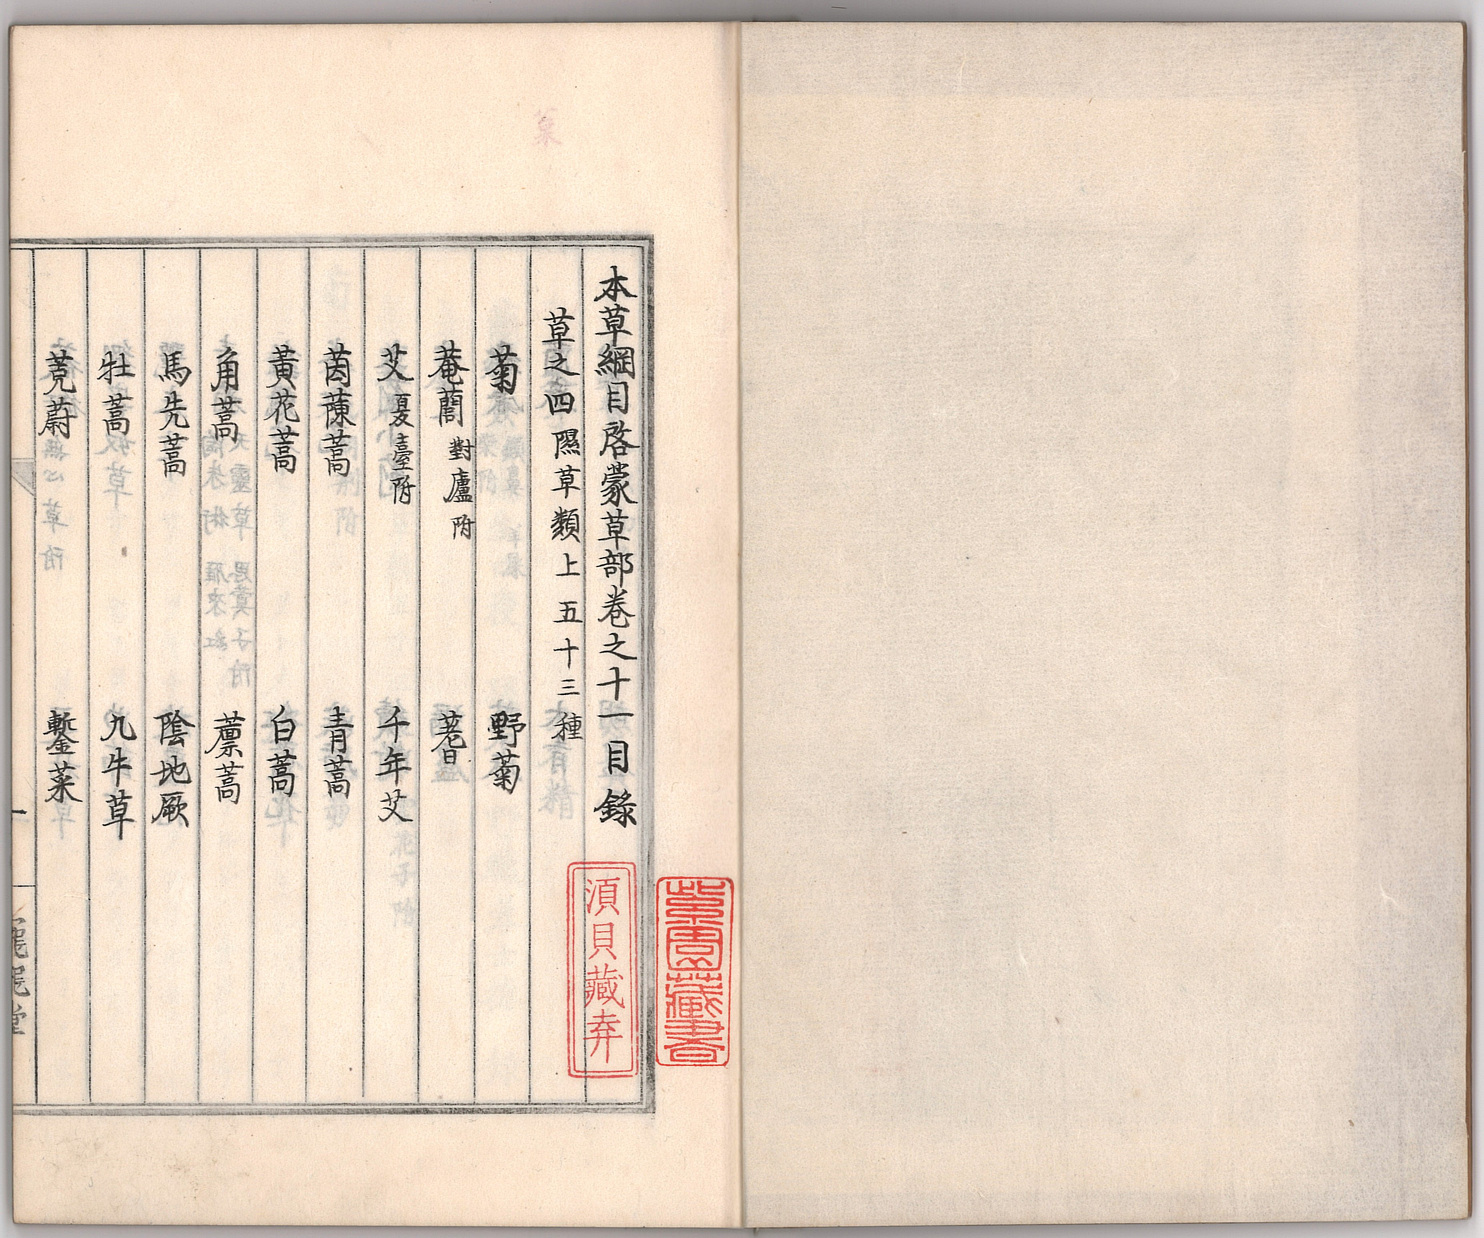 本草綱目啓蒙草部卷之十一目錄
草之四隰草類上五十三種
菊 野菊
菴䕡 對廬附 蓍
艾 夏臺附 千年艾
茵蔯蒿 青蒿
黃花蒿 白蒿
角蒿 藨蒿
馬先蒿 陰地厥
牡蒿 九牛草
茺蔚 鏨菜
一
湏貝藏弆
藏書